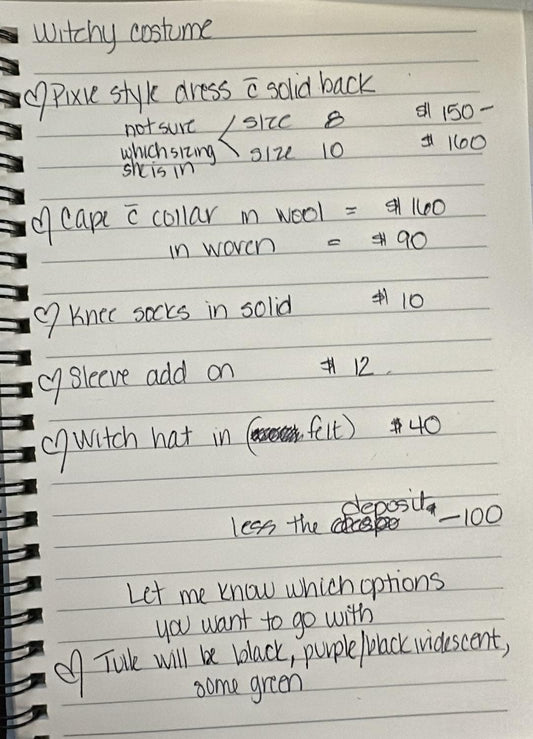 Witchy costume
Pixie style dress c̄ solid back
not sure size 8 $150-
which sizing size 10 $160
she is in
Cape c̄ collar in wool = $160
in woven = $90
Knee socks in solid $10
Sleeve add on $12.
Witch hat in (felt) $40
deposit
less the -100
Let me know which options
you want to go with
Tulle will be black, purple/black iridescent,
some green